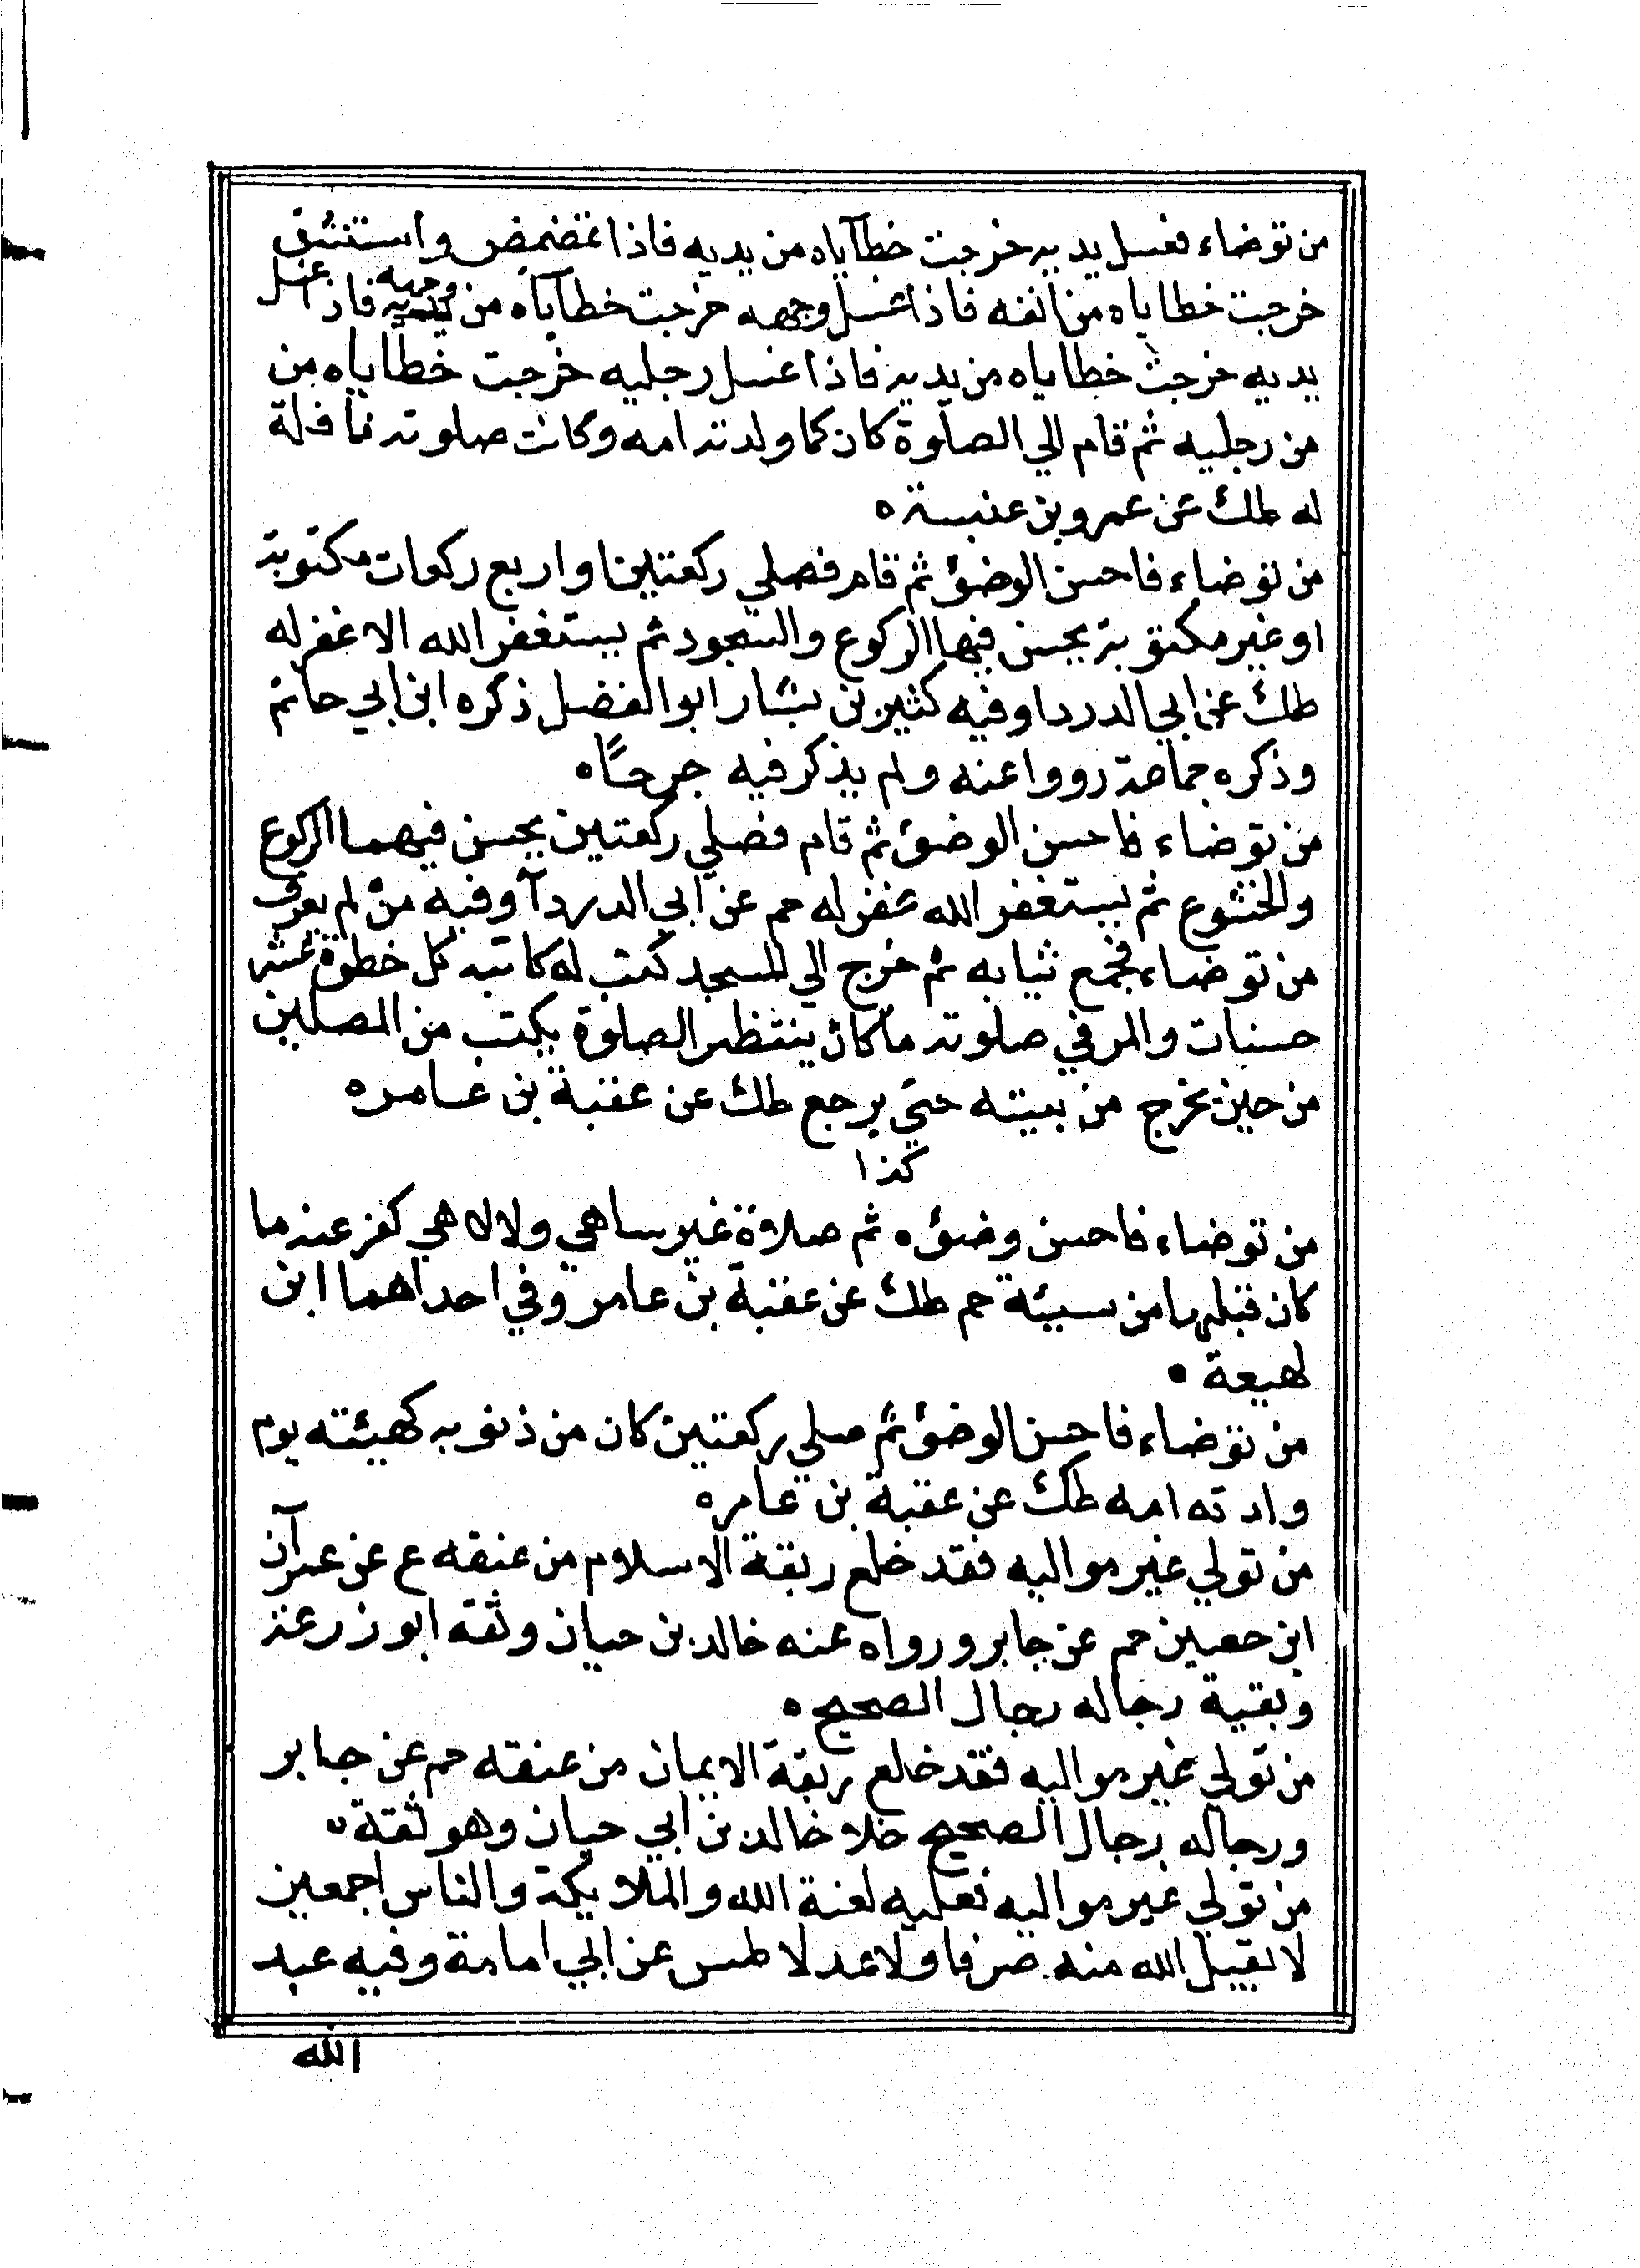 من توضاء فغسل يديه خرجت خطاياه من يديه فاذا تمضمض واستنشق
خرجت خطاياه من انفه فاذا غسل وجهه خرجت خطاياه من وجهه فاذا غسل
يديه خرجت خطاياه من يديه فاذا غسل رجليه خرجت خطاياه من
من رجليه ثم قام الي الصلوة كان كما ولدته امه وكانت صلوته نافلة
له طك عن عمرو بن عنبسة ه
من توضاء فاحسن الوضؤ ثم قام فصلي ركعتين او اربع ركعات مكتوبة
او غير مكتوبة يحسن فيها الركوع والسجود ثم يستغفر الله الا غفر له
طك عن ابي الدردا وفيه كثير بن بشار ابو الفضل ذكره ابن ابي حاتم
وذكره جماعة رووا عنه ولم يذكر فيه جرحًا ه
من توضاء فاحسن الوضؤ ثم قام فصلي ركعتين يحسن فيهما الركوع
والخشوع ثم يستغفر الله غفر له حم عن ابي الدردآ وفيه من لم يعرف
من توضاء فجمع ثيابه ثم خرج الي المسجد كتب له كاتبه كل خطوة عشر
حسنات والمر في صلوته ما كان ينتظر الصلوة يكتب من المصلين
من حين يخرج من بيته حتي يرجع طك عن عقبة بن عامر ه
كذا
من توضاء فاحسن وضؤه ثم صلاة غير ساهي ولا لاهي كفر عنه ما
كان قبلها من سيئة حم طك عن عقبة بن عامر وفي احداهما ابن
لهيعة •
من توضاء فاحسن الوضؤ ثم صلي ركعتين كان من ذنوبه كهيئته يوم
ولدته امه طك عن عقبة بن عامر ه
من تولي غير مواليه فقد خلع ربقة الاسلام من عنقه ع عن عمرآن
ابن حصين حم عن جابر ورواه عنه خالد بن حيان وثقه ابو زرعة
وبقية رجاله رجال الصحيح ه
من تولي غير مواليه فقد خلع ربقة الايمان من عنقه حم عن جابر
ورجاله رجال الصحيح خلا خالد بن ابي حيان وهو ثقة
من تولي غير مواليه فعليه لعنة الله والملايكة والناس اجمعين
لا يقبل الله منه صرفا ولا عدلا طس عن ابي امامة وفيه عبد
الله